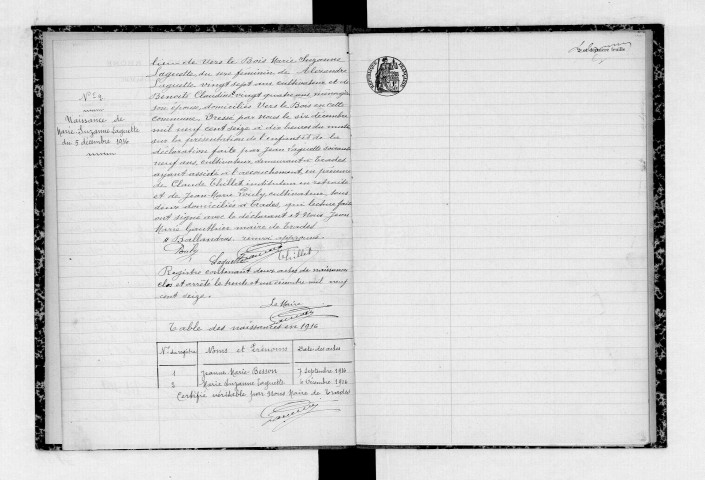 N° 2
Naissance de
Marie Suzanne Laguette
du 5 décembre 1916
lieu de Vers le Bois Marie Suzanne
Laguette du sexe féminin de Alexandre
Laguette vingt sept ans cultivateur et de
Benoite Claudine vingt quatre ans ménagère
son épouse, domiciliés Vers le Bois en cette
commune. Dressé par nous le six décembre
mil neuf cent seize à dix heures du matin
sur la présentation de l'enfant et de la
déclaration faite par Jean Laguette soixante
neuf ans, cultivateur demeurant à Trades
ayant assisté à l'accouchement, en présence
de Claude Thillet instituteur en retraite
et de Jean-Marie Pouly cultivateur, tous
deux domiciliés à Trades, qui lecture faite
ont signé avec le déclarant et Nous Jean
Marie Gauthier maire de Trades
renvoi approuvé
Pouly
Laguette Thillet
Registre contenant deux actes de naissances
clos et arrêté le trente et un décembre mil neuf
cent seize.
Le Maire
Table des naissances en 1916
N° du registre Noms et Prénoms Date des actes
1 Jeanne Marie Besson 7 Septembre 1916
2 Marie Suzanne Laguette 6 Décembre 1916
Certifié véritable par Nous Maire de Trades
et dernière feuille